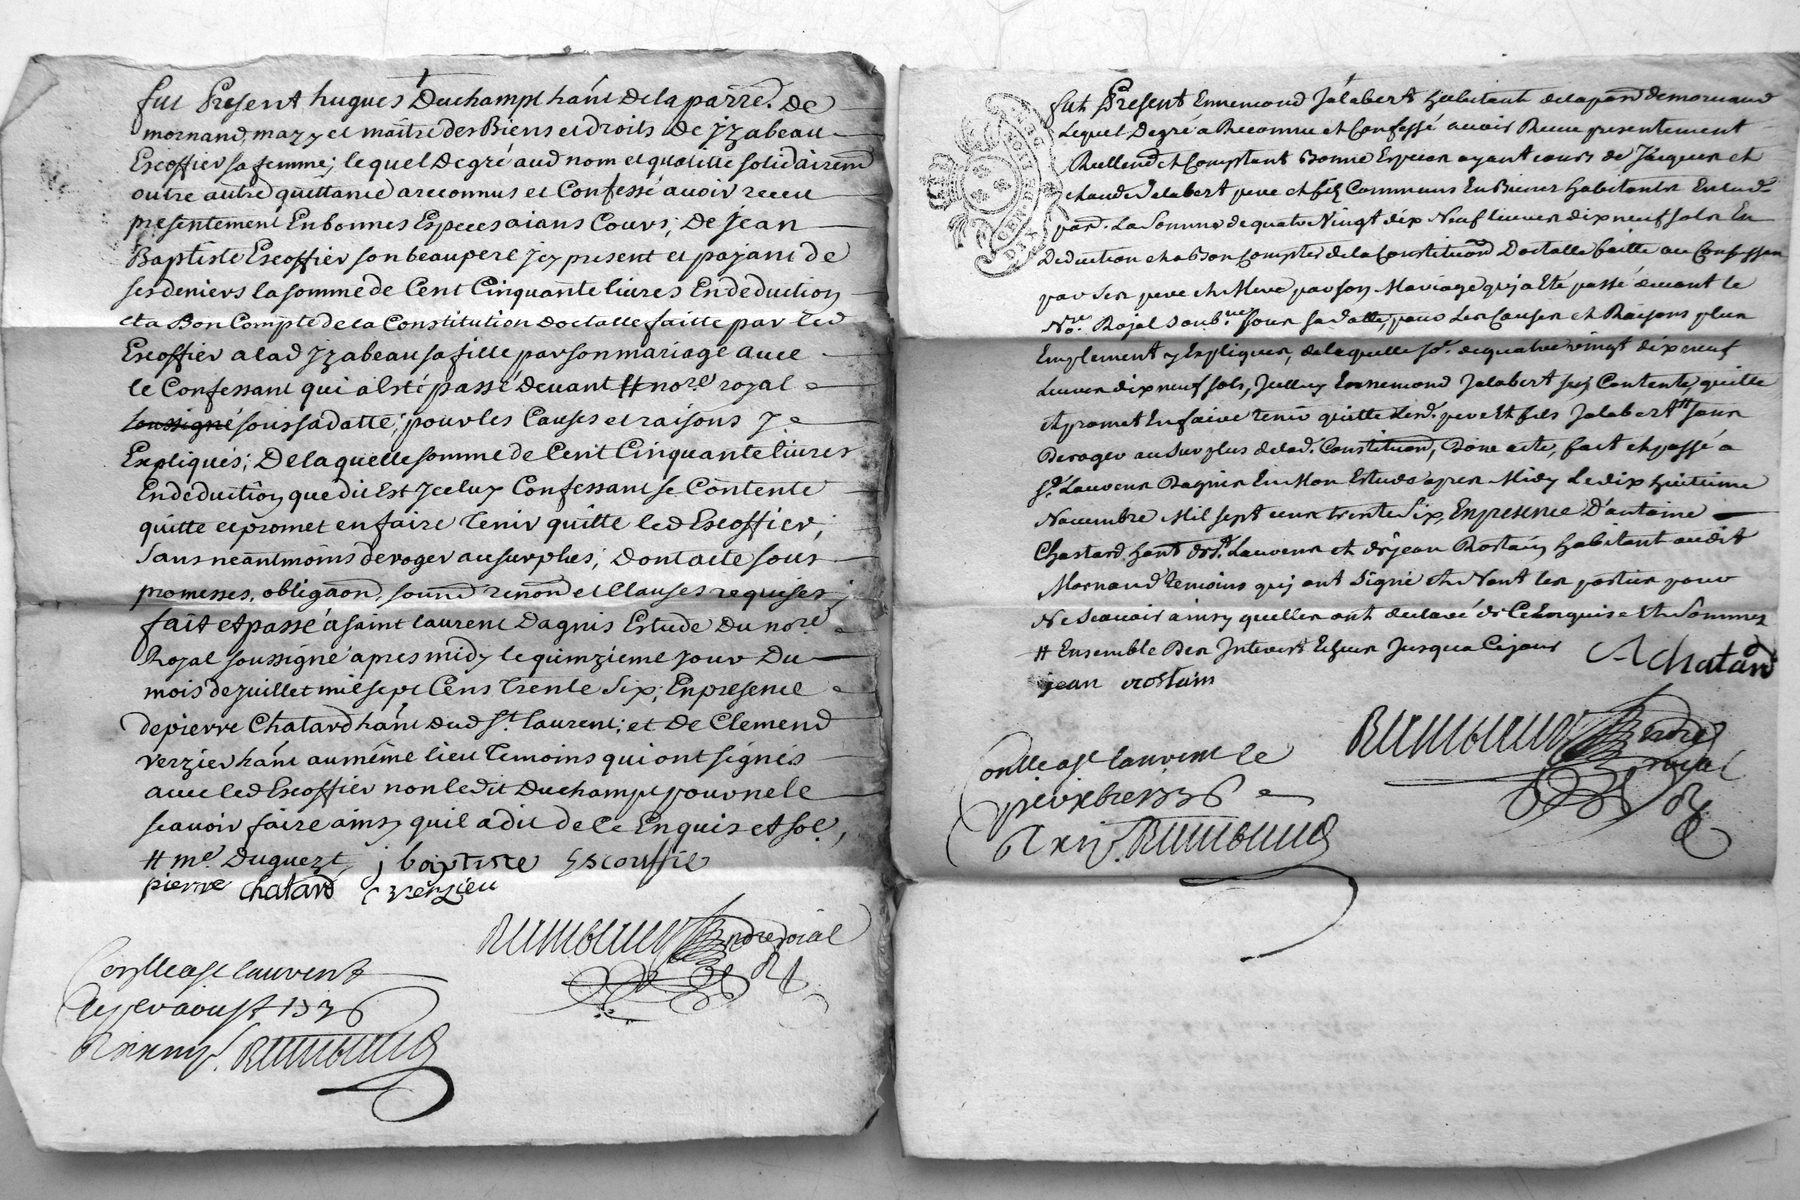 fut Present hugues Duchampt hânt dela parre. De
mornand, mary et maître des Biens et droits De Jzabeau
Escoffier sa femme; lequel De gré aud nom et qualitte solidairemt
outre autre quittance a reconnus et Confessé avoir receu
presentement En bonnes Especes aians Cours; De Jean
Baptiste Escoffier son beaupere Jcy present et paiant de
ses deniers la somme de Cent Cinquante livres En deduction
et a Bon Compte de la Constitution doctalle faitte par led
Escoffier a lad Jzabeau sa fille par son mariage avec
le Confessant qui a Esté passé devant # nore royal
soussigné sous sa datte; pour les Causes et raisons y
Expliqués; De laquelle somme de Cent Cinquante livres
En deduction que dit Est Jceluy Confessant se Contente
quitte et promet en faire tenir quitte led Escoffier;
sans neantmoins deroger au surplus; dont acte sous
promesses, obligaon, soumd renond et Clauses requises;
fait et passé à saint laurent Dagnis Estude Du nore
Royal soussigné apres midy le quinzieme jour Du
mois de juillet mil sept Cens trente six; En presence
de pierre Chatard hânt dud st. laurent; et De Clemend
verzier hânt au même lieu temoins qui ont signés
avec led Escoffier non ledit Duchampt pour ne le
scavoir faire ainsy quil a dit de ce Enquis et sole,
# me Duguezt j baptiste Escouffié
pierre chatard C verzieu
nore roial
st laurent
aoust 1736
Fut Present Ennemond Jalabert habitant de la parr de mornand
Lequel De gré a Reconnu et Confessé avoir Receu presentement
Reellemt et Comptant Bonne Especes ayant cours de Jacques et
claude Jalabert pere et fils Communs En Biens habitants En lad.
parr. La Somme de quatre Vingt dix Neuf livres dix neuf sols En
Deduction et a Bon compte de la Constitution Doctalle faitte au Confessan
par ses pere et Mere par son Mariage qui a Eté passé devant le
Nore. Royal soubne. sous sa datte, pour Les Causes et Raisons plus
Emplement y Expliques, de laquelle se. de quatre vingt dix neuf
Livres dix neuf sols, Jelluy Ennemond Jalabert se Contente, quitte
et promet En faire tenir quitte Lesd. pere Et fils Jalabert # sans
Deroger au surplus de lad. Constitution, Donc acte, fait et passé a
st. Laurens Dagnis En Mon Estude apres Midy Le dix huitieme
Novembre Mil sept cens trente Six, En presence D'antoine
Chatard hant dud st. Laurens et de jean Rostain habitant audit
Mornand temoins qui ont Signé et Nont les parties pour
Ne Scavoir ainsy quelles ont declaré de Ce Enquis et Sommez
# Ensemble Des Interets Echeus Jusqua Ce jour A chatard
jean rostain
nore
royal
st laurent le
xbre 1736